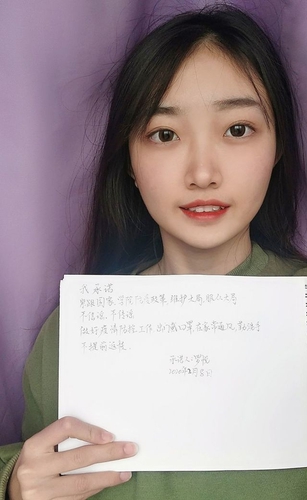 我承诺
照顾国家、学院防疫政策 维护大局,服从大局
不信谣、不传谣
做好疫情防控工作 出门戴口罩,在家常通风,勤洗手
不提前返校
承诺人:
2020年2月